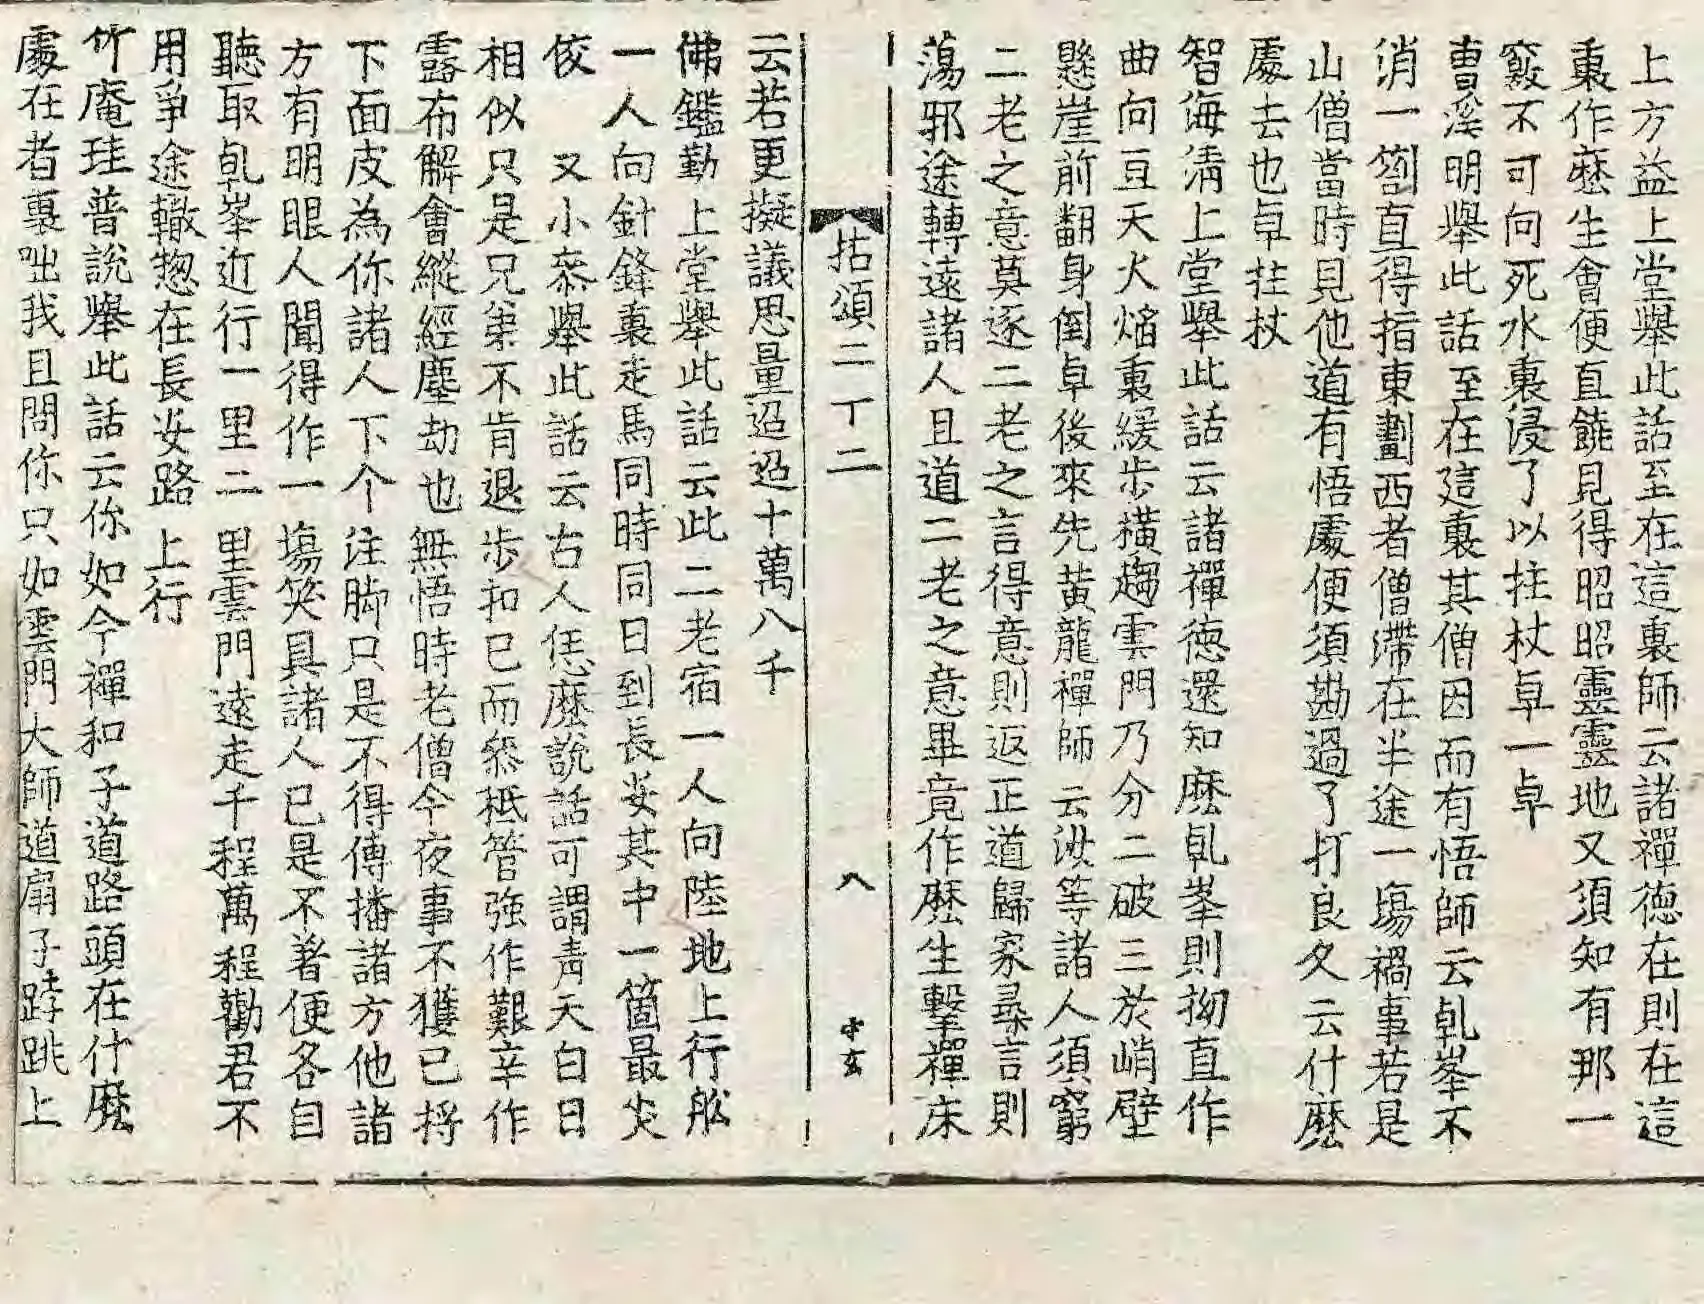 上方益上堂舉此話至在這裏師云諸禪德在則在這
裏作麽生會便直饒見得昭昭靈靈地又須知有那一
竅不可向死水裏浸了以拄杖卓一卓
曺溪明舉此話至在這裏其僧因而有悟師云乹峯不
消一劄直得指東劃西者僧滯在半途一場禍事若是
山僧當時見他道有悟處便須勘過了打良久云什麽
處去也卓拄杖
智海淸上堂舉此話云諸禪德還知麽乹峯則拗直作
曲向亘天火焰裏緩步橫趨雲門乃分二破三於峭壁
懸崖前翻身倒卓後來先黃龍禪師云汝等諸人須窮
二老之意莫逐二老之言得意則返正道歸家尋言則
蕩邪途轉遠諸人且道二老之意畢竟作麽生擊禪床
拈頌二丁二 八 中玄
云若更擬議思量迢迢十萬八千
佛鑑勤上堂舉此話云此二老宿一人向陸地上行舩
一人向針鋒裏走馬同時同日到長安其中一箇最尖
佼 又小叅舉此話云古人恁麽說話可謂靑天白日
相似只是兄弟不肯退步扣已而叅秪管强作艱辛作
露布解會縱經塵劫也無悟時老僧今夜事不獲已捋
下面皮為你諸人下个注脚只是不得傳播諸方他諸
方有明眼人聞得作一塲笑具諸人已是不著便各自
聽取乹峯近行一里二里雲門遠走千程萬程勸君不
用爭途轍惣在長安路上行
竹庵珪普說舉此話云你如今禪和子道路頭在什麽
處在者裏咄我且問你只如雲門大師道扇子𨁝跳上